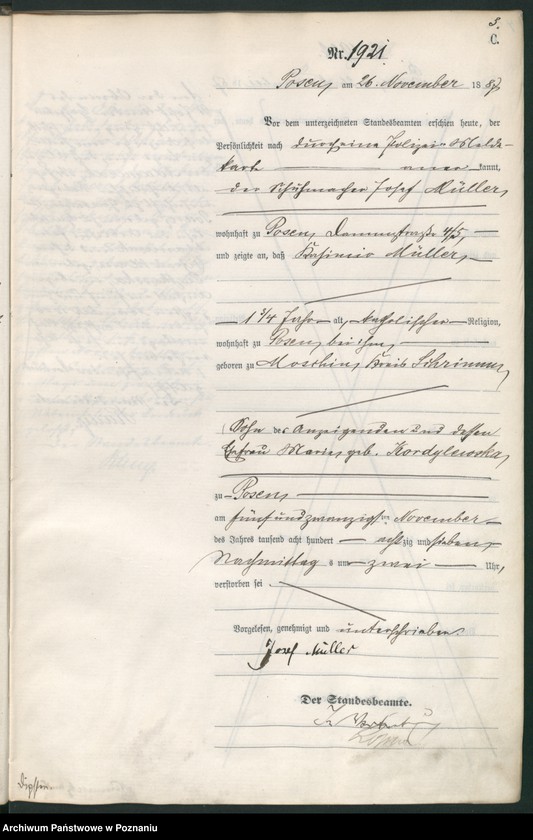 C.
Nr. 1921.
Posen, am 26. November 1887.
Vor dem unterzeichneten Standesbeamten erschien heute, der
Persönlichkeit nach durch eine Polizei-Melde-
karte anerkannt,
der Schuhmacher Josef Müller,
wohnhaft zu Posen, Dammstraße 4/5,
und zeigte an, daß Kasimir Müller,
1 3/4 Jahr alt, katholischer Religion,
wohnhaft zu Posen, bei ihm,
geboren zu Moschin, Kreis Schrimm,
Sohn des Anzeigenden und dessen
Ehefrau Marie, geb. Kordylewska,
zu Posen,
am fünfundzwanzigsten November
des Jahres tausend acht hundert achtzig und sieben,
Nachmittags um zwei Uhr,
verstorben sei.
Vorgelesen, genehmigt und unterschrieben.
Josef Müller
Der Standesbeamte.
In Vertretung
Archiwum Państwowe w Poznaniu